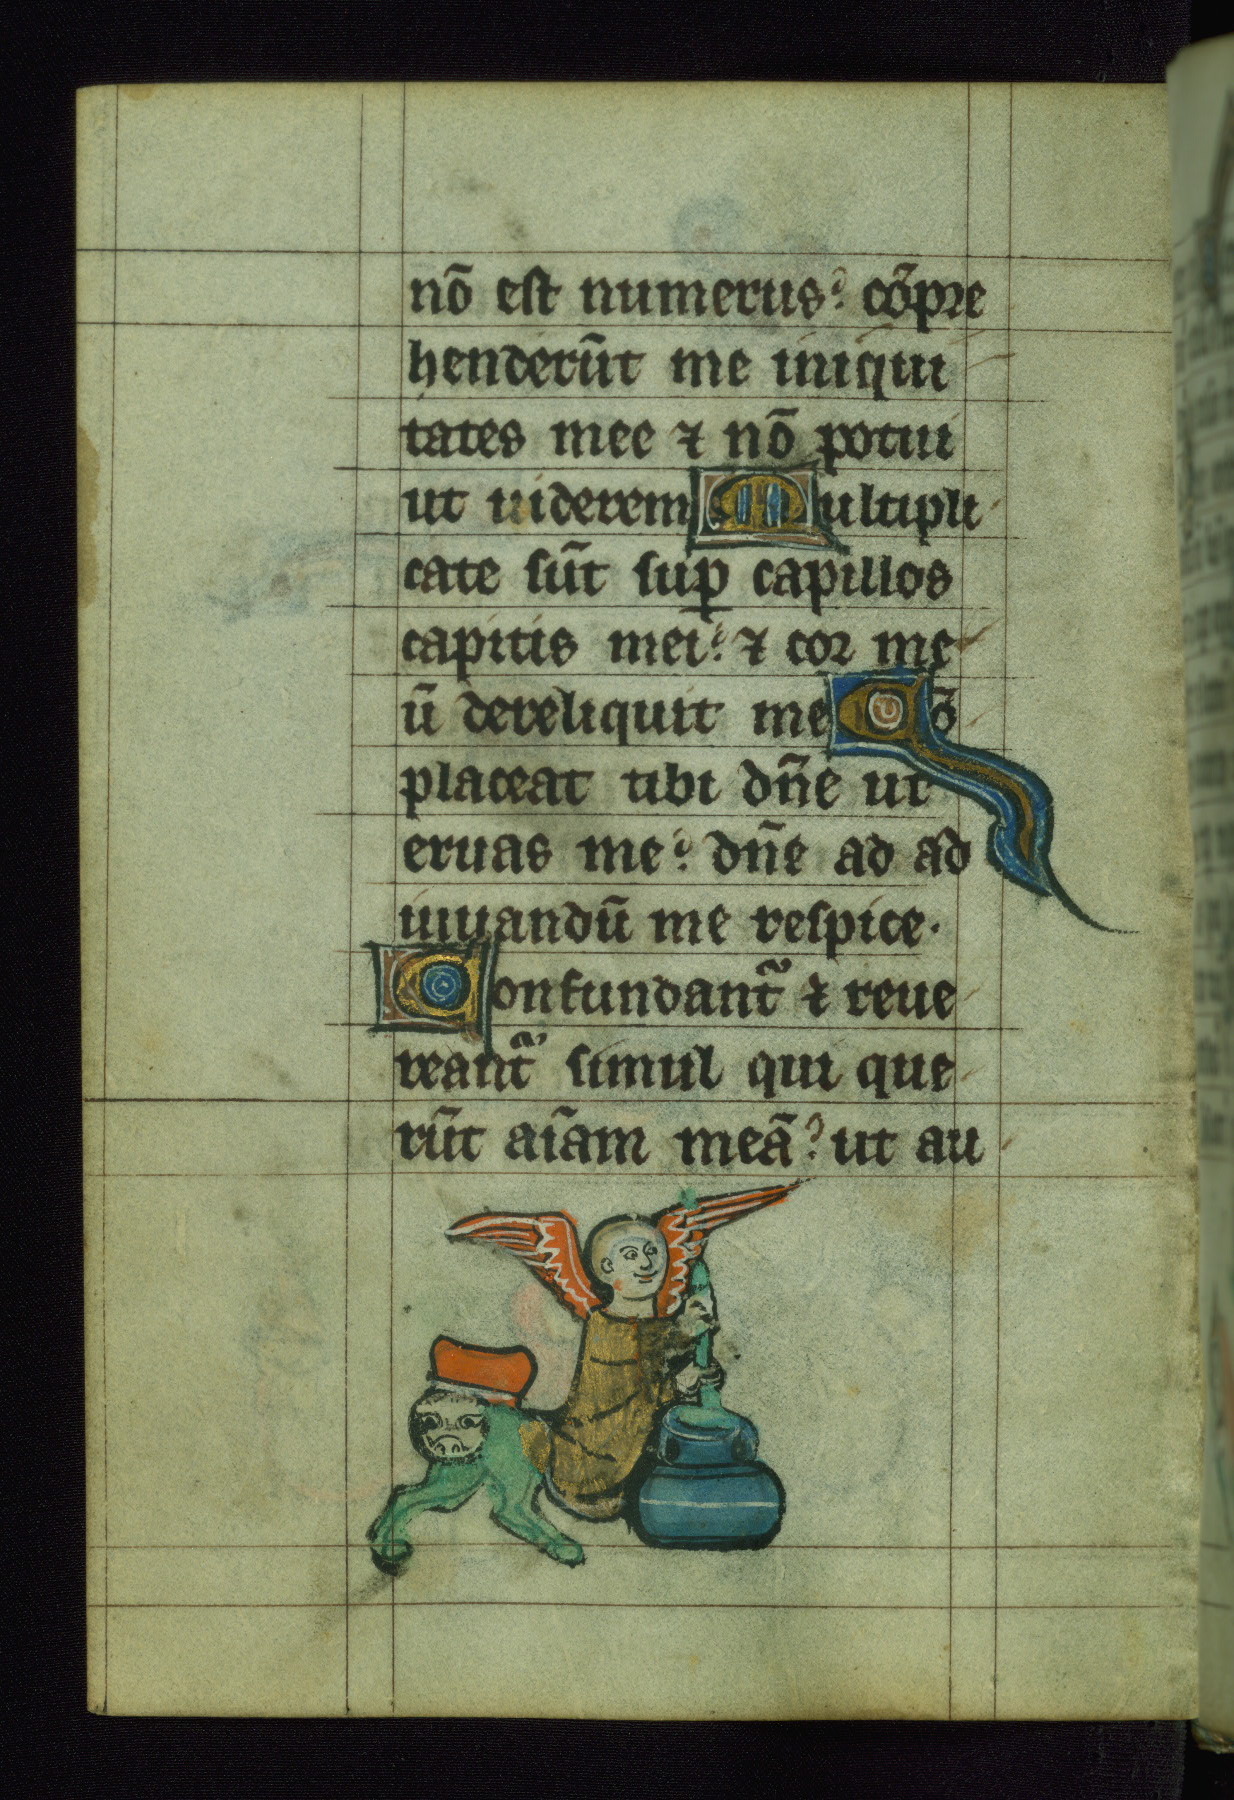 nō est numerus: cōpre
henderūt me iniqui
tates mee ⁊ nō potui
ut uiderem Multipli
cate sūt sup capillos
capitis mei: ⁊ cor me
ū dereliquit me Cō
placeat tibi dn̄e ut
eruas me: dn̄e ad ad
iuuandū me respice.
Confundant᷑ ⁊ reue
reant᷑ simul qui que
rūt aīam meā: ut au